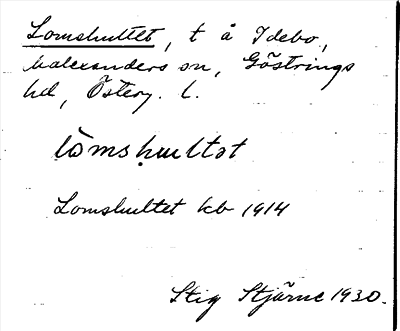 Lomshultet, t å Idebo,
Malexanders sn, Göstrings
hd, Österg. l.
lòmshultət
Lomshultet kb 1914
Stig Stjärne 1930.